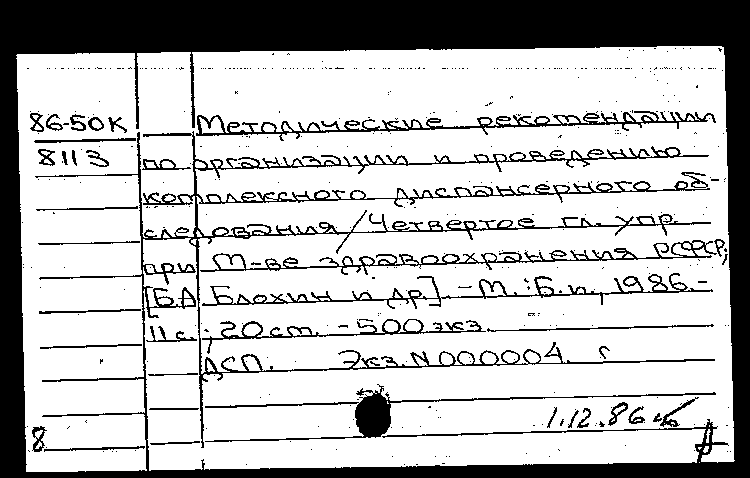 86-50К Методические рекомендации
8113 по организации и проведению
комплексного диспансерного об-
следования / Четвертое гл. упр.
при М-ве здравоохранения РСФСР;
[Б.А. Блохин и др.]. - М. : Б.и., 1986. -
11 с. ; 20 см. - 500 экз.
ДСП. Экз. N 000004.
1.12.86
8